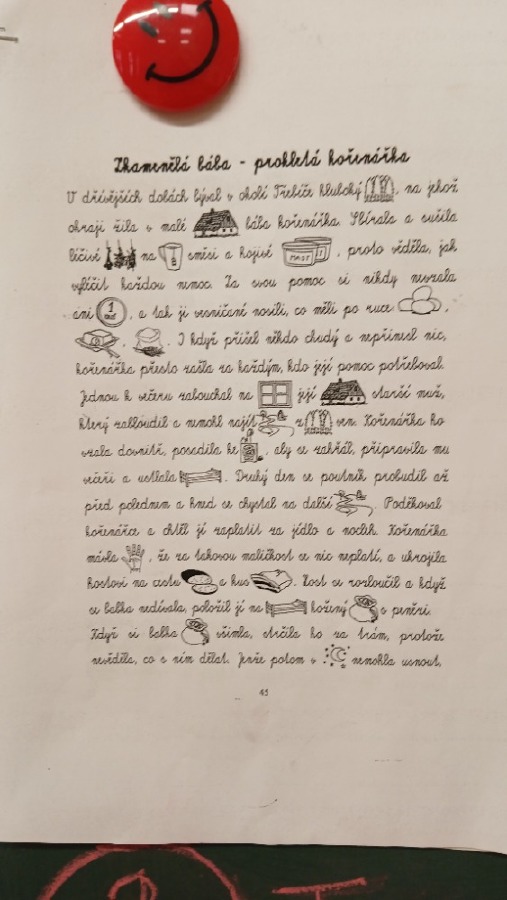 Zkamenělá bába - prokletá kořenářka
V dřívějších dobách býval v okolí Třebíče hluboký , na jehož
okraji žila v malé bába kořenářka. Sbírala a sušila
léčivé na směsi a hojivé MAST , proto věděla, jak
vyléčit každou nemoc. Za svou pomoc si nikdy nevzala
ani 1 , a tak jí vesničané nosili, co měli po ruce ,
, . I když přišel někdo chudý a nepřinesl nic,
kořenářka přesto zašla za každým, kdo její pomoc potřeboval.
Jednou k večeru zabouchal na její starší muž,
který zabloudil a nemohl najít z ven. Kořenářka ho
vzala dovnitř, posadila ke , aby se zahřál, připravila mu
večeři a ustlala . Druhý den se poutník probudil až
před polednem a hned se chystal na další . Poděkoval
kořenářce a chtěl jí zaplatit za jídlo a nocleh. Kořenářka
mávla , že za takovou maličkost se nic neplatí, a ukrojila
hostovi na cestu a kus . Host se rozloučil a když
se babka nedívala, položil jí na kožený s penězi.
Když si babka všimla, strčila ho za trám, protože
nevěděla, co s ním dělat. Jenže potom v nemohla usnout,
45